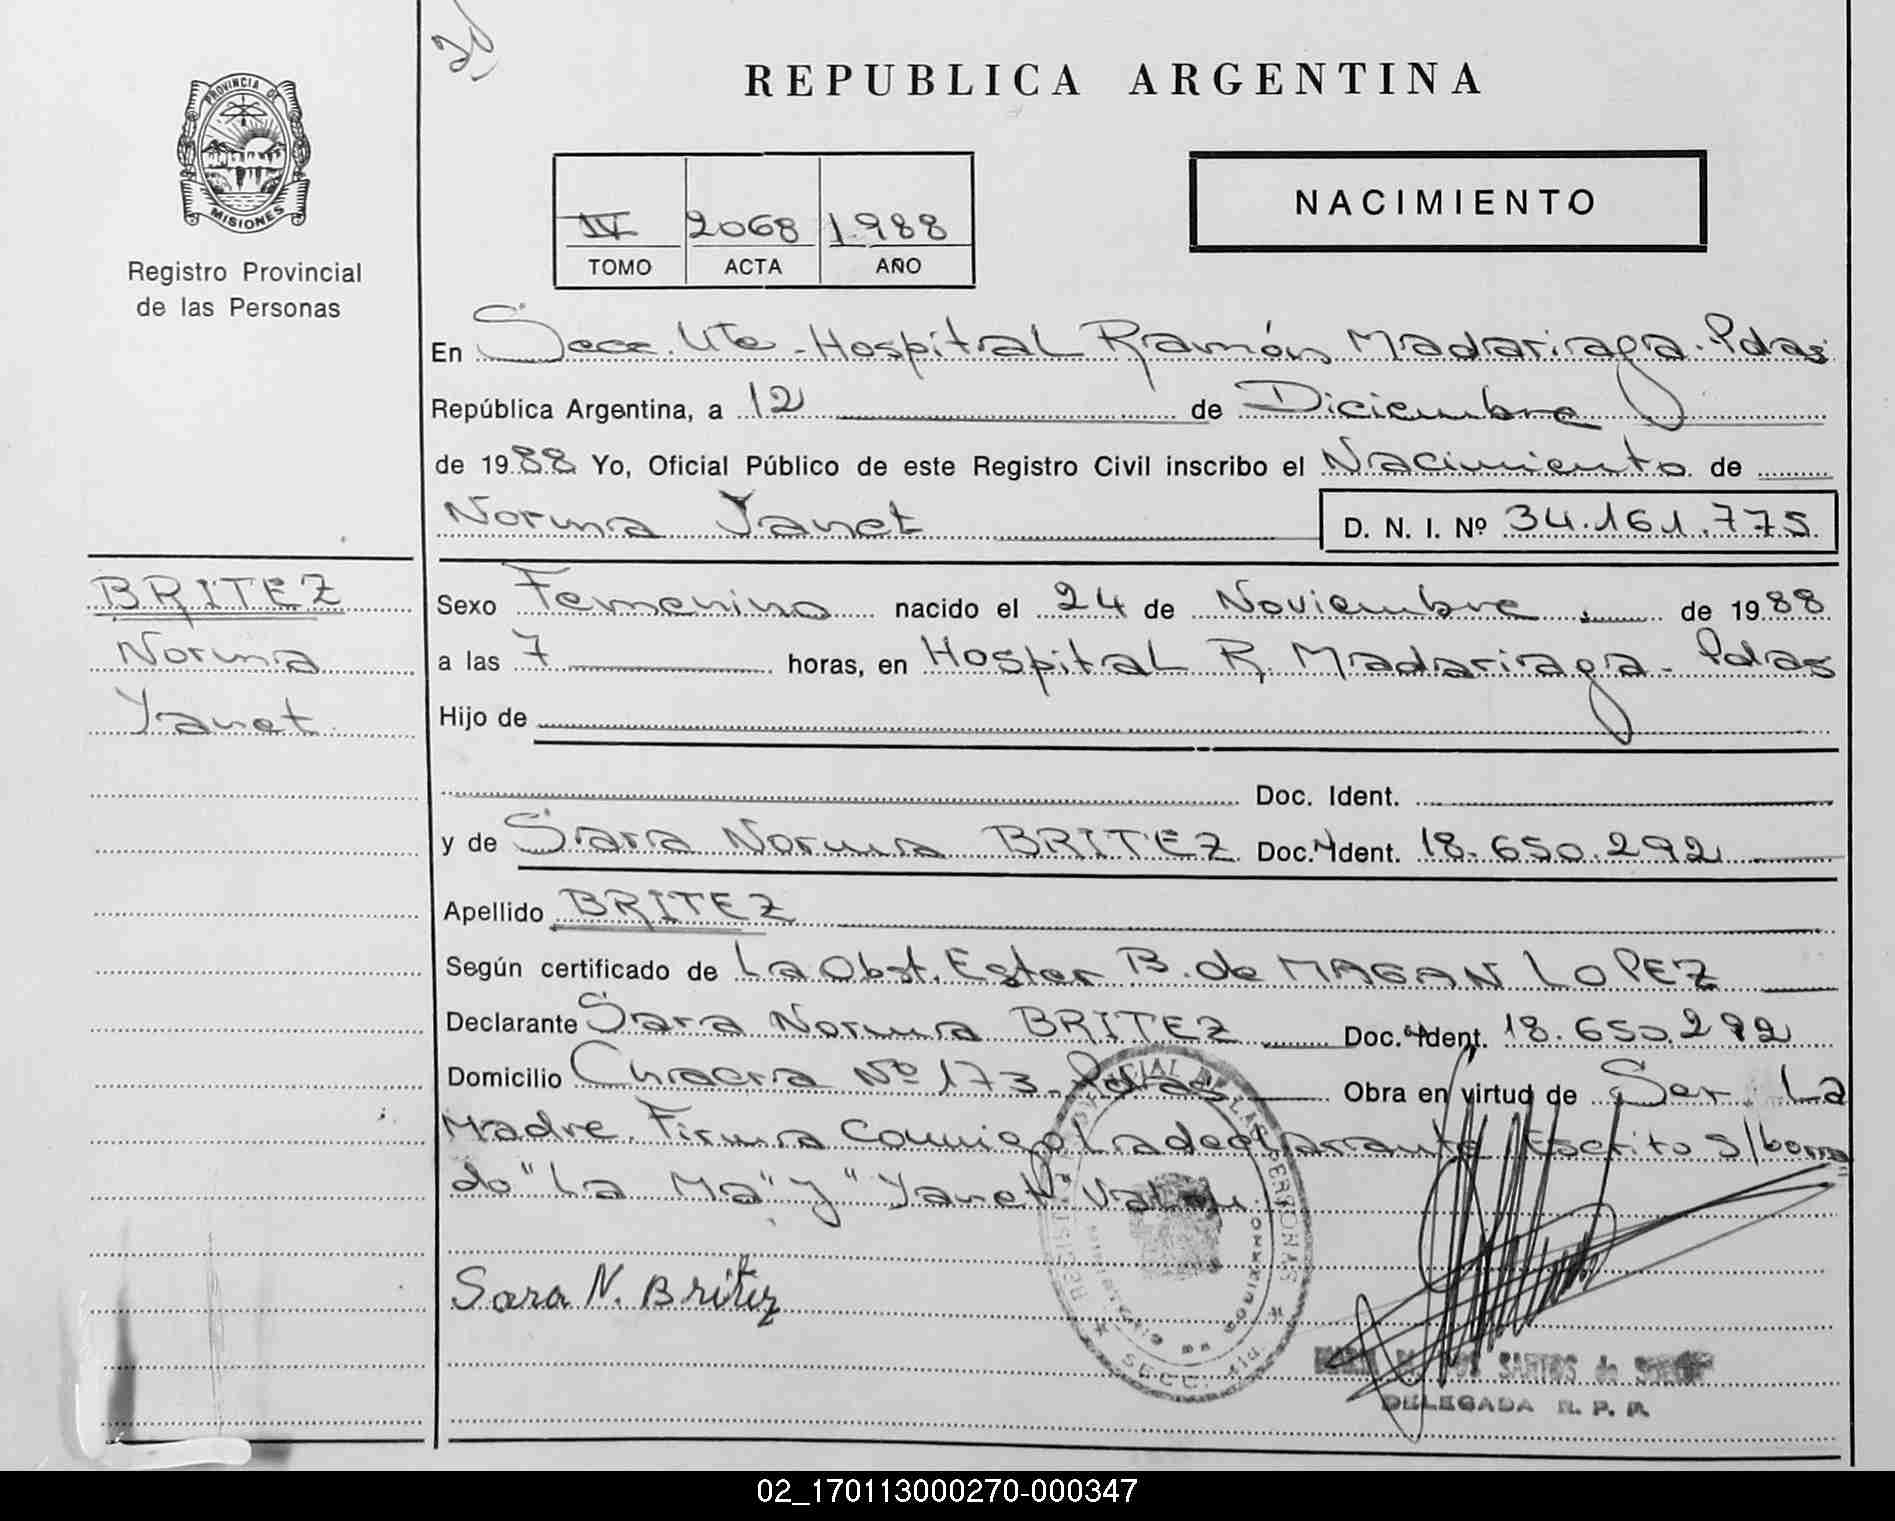 REPUBLICA ARGENTINA
PROVINCIA DE
MISIONES
Registro Provincial
de las Personas
IV 2068 1988
TOMO ACTA AÑO
NACIMIENTO
En Secc. Ute - Hospital Ramón Madariaga - Pdas
República Argentina, a 12 de Diciembre
de 1988 Yo, Oficial Público de este Registro Civil inscribo el Nacimiento de
Norma Yanet D. N. I. Nº 34.161.775
BRITEZ
Norma
Yanet
Sexo Femenino nacido el 24 de Noviembre de 1988
a las 7 horas, en Hospital R. Madariaga - Pdas
Hijo de
Doc. Ident.
y de Sara Norma BRITEZ Doc. Ident. 18.650.292
Apellido BRITEZ
Según certificado de La Obst. Ester B. de MAGAN LOPEZ
Declarante Sara Norma BRITEZ Doc. Ident. 18.650.292
Domicilio Chacra Nº 173 - Pdas Obra en virtud de Ser La
Madre. Firma Conmigo La declarante. Escrito s/borra
do "La Ma" y "Yanet" Vale
Sara N. Britez
SANTOS de
DELEGADA R. P. P.
02_170113000270-000347